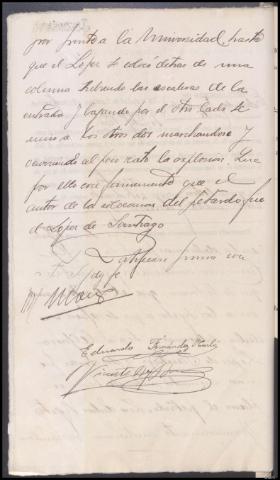 por frente a la Universidad, hasta
que el López se colocó detrás de una
columna bajando las escaleras de la
entrada y bajando por el otro lado se
unió a los otros dos marchandose y
ocurriendo al poco rato la explosion. Que
por ello cree firmemente que el
autor de la colocacion del petardo fue
el López de Santiago
Ratifican firma con
doy fe
Eduardo Fernández
Vicente